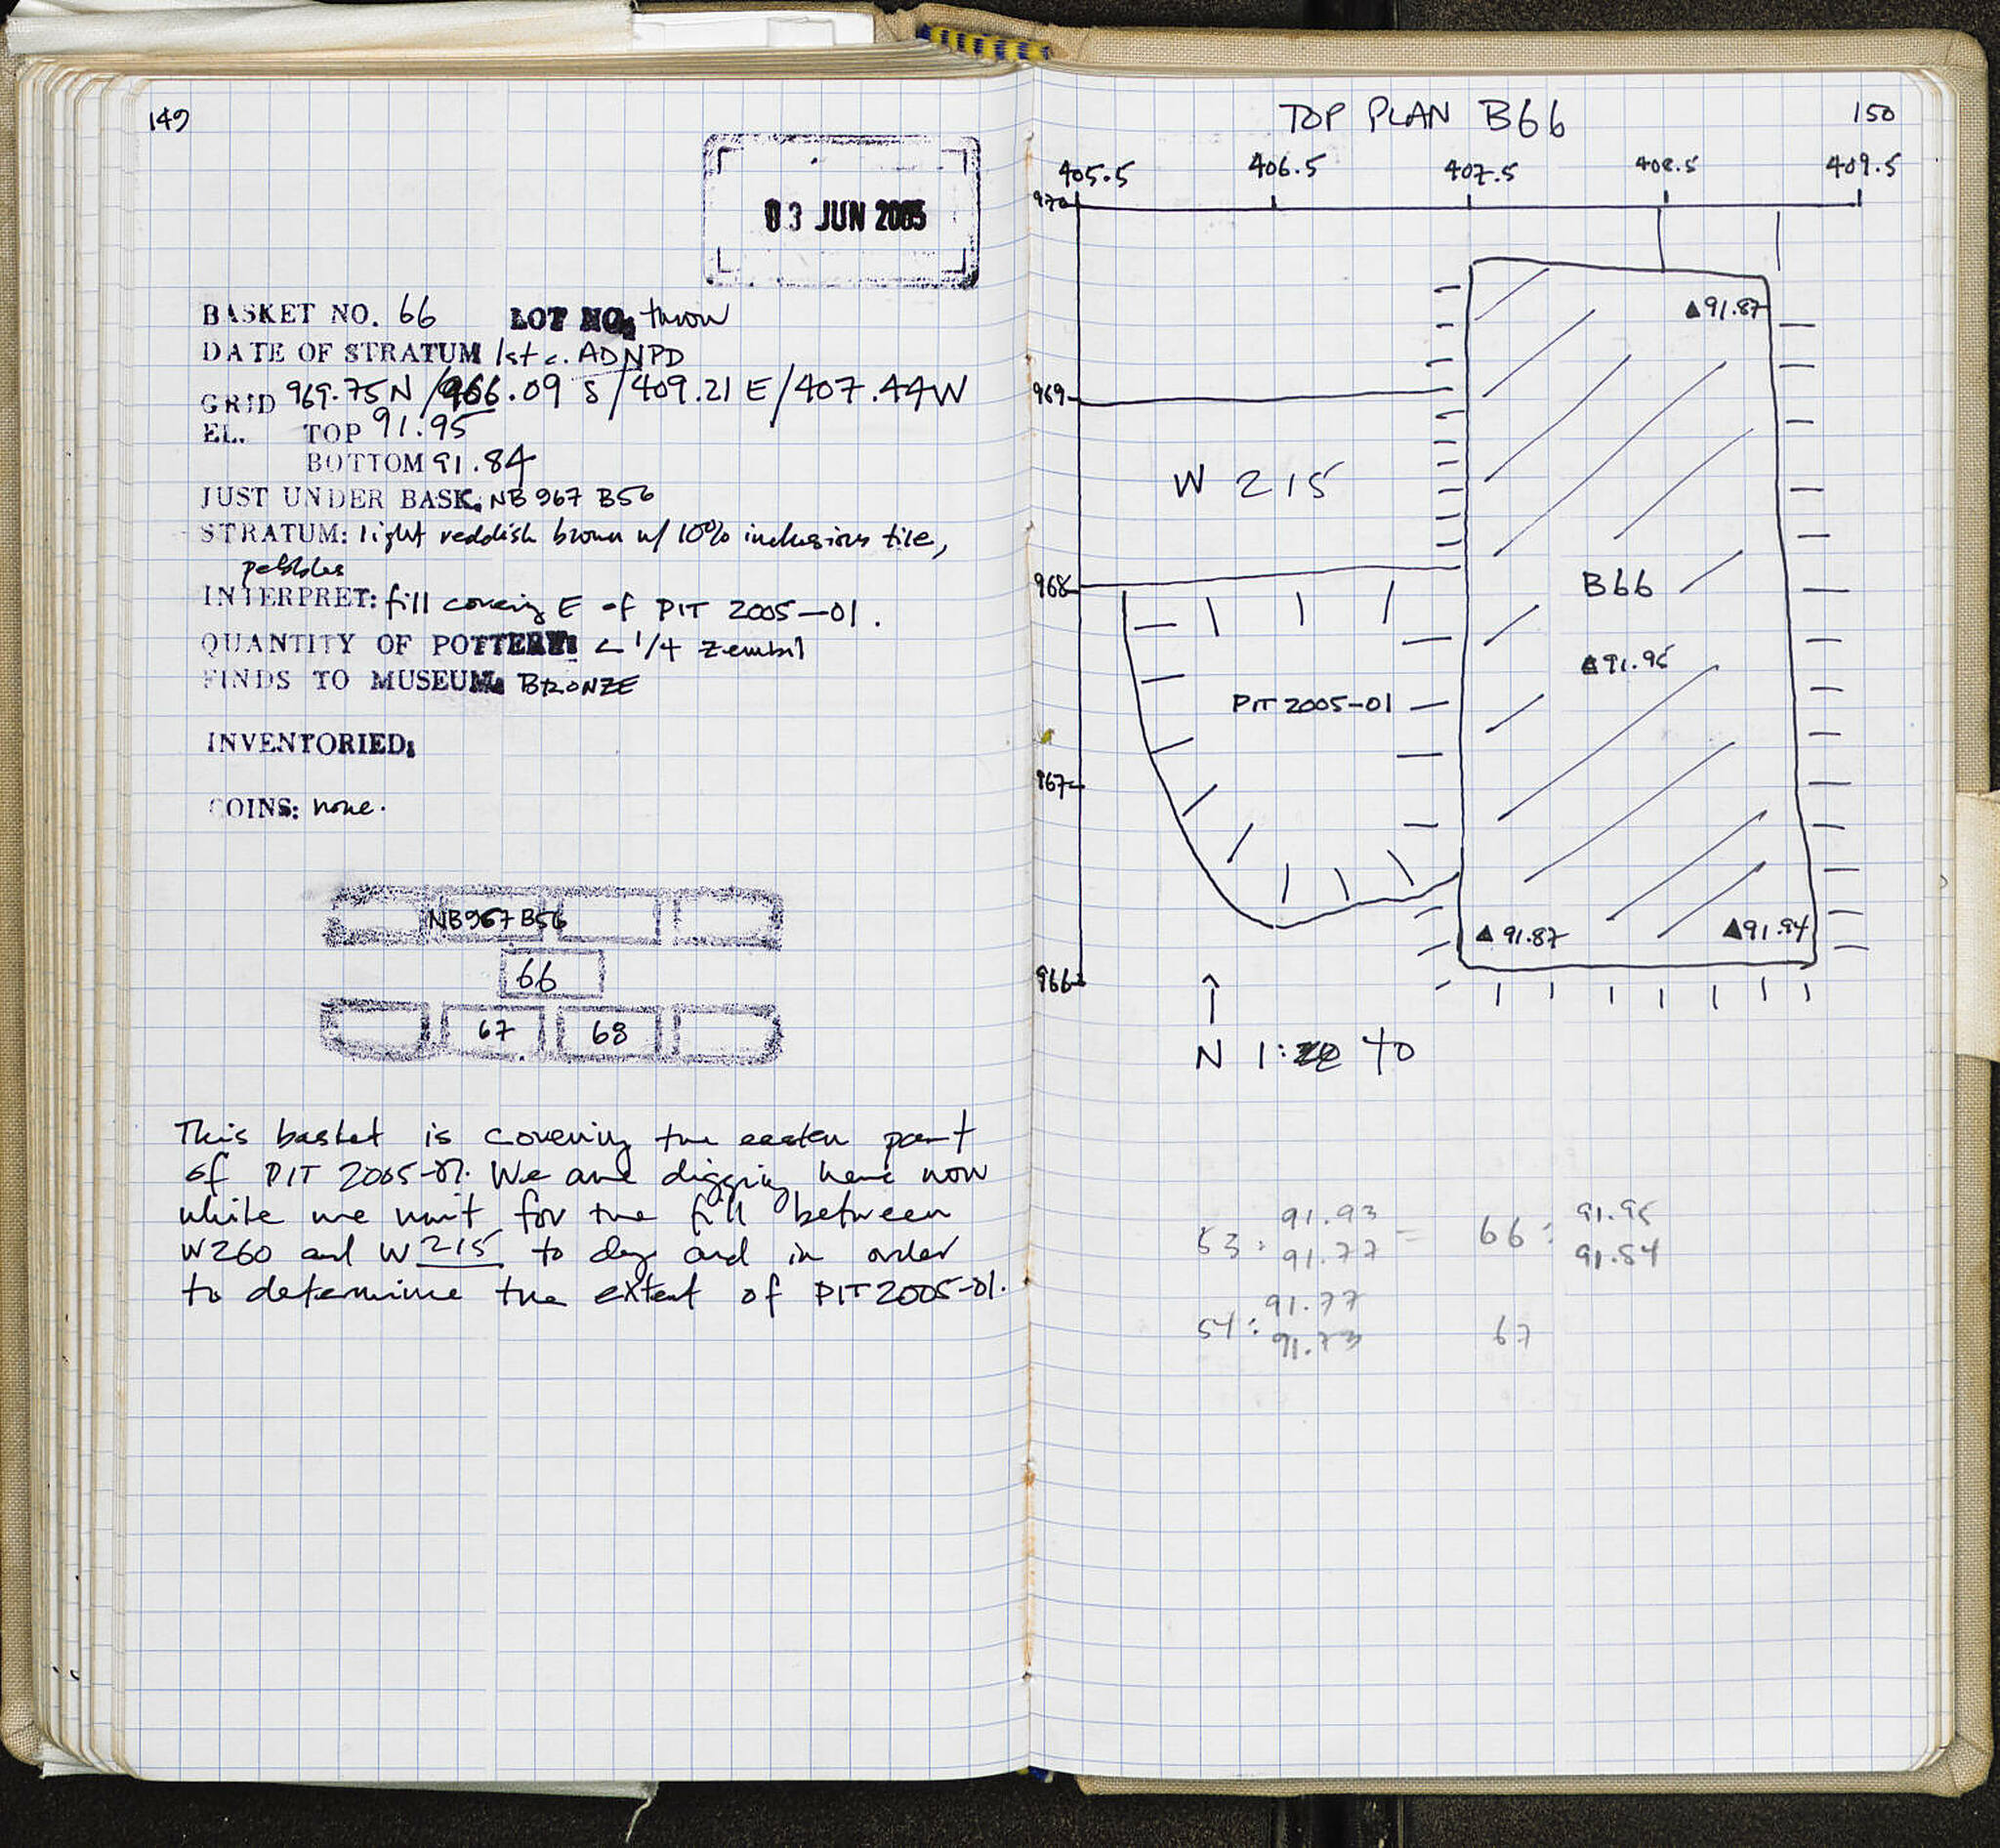 149
03 JUN 2005
BASKET NO. 66 LOT NO: throw
DATE OF STRATUM 1st c. AD NPD
GRID 969.75N/966.09 S/409.21 E/407.44W
EL. TOP 91.95
BOTTOM 91.84
JUST UNDER BASK: NB967 B56
STRATUM: light reddish brown w/ 10% inclusions tile,
pebbles
INTERPRET: fill covering E of PIT 2005-01.
QUANTITY OF POTTERY: < 1/4 zembil
FINDS TO MUSEUM: BRONZE
INVENTORIED:
COINS: none.
NB967 B56
66
67 68
This basket is covering the eastern part
of PIT 2005-01. We are digging here now
while we wait for the fill between
W260 and W215 to dry and in order
to determine the extent of PIT 2005-01.
TOP PLAN B66
150
405.5 406.5 407.5 408.5 409.5
970
▲91.87
969
W 215
968
B66
▲91.95
PIT 2005-01
967
▲91.87 ▲91.94
966
N 1:40
53: 91.93 = 66: 91.95
91.77 91.84
54: 91.77 67
91.73